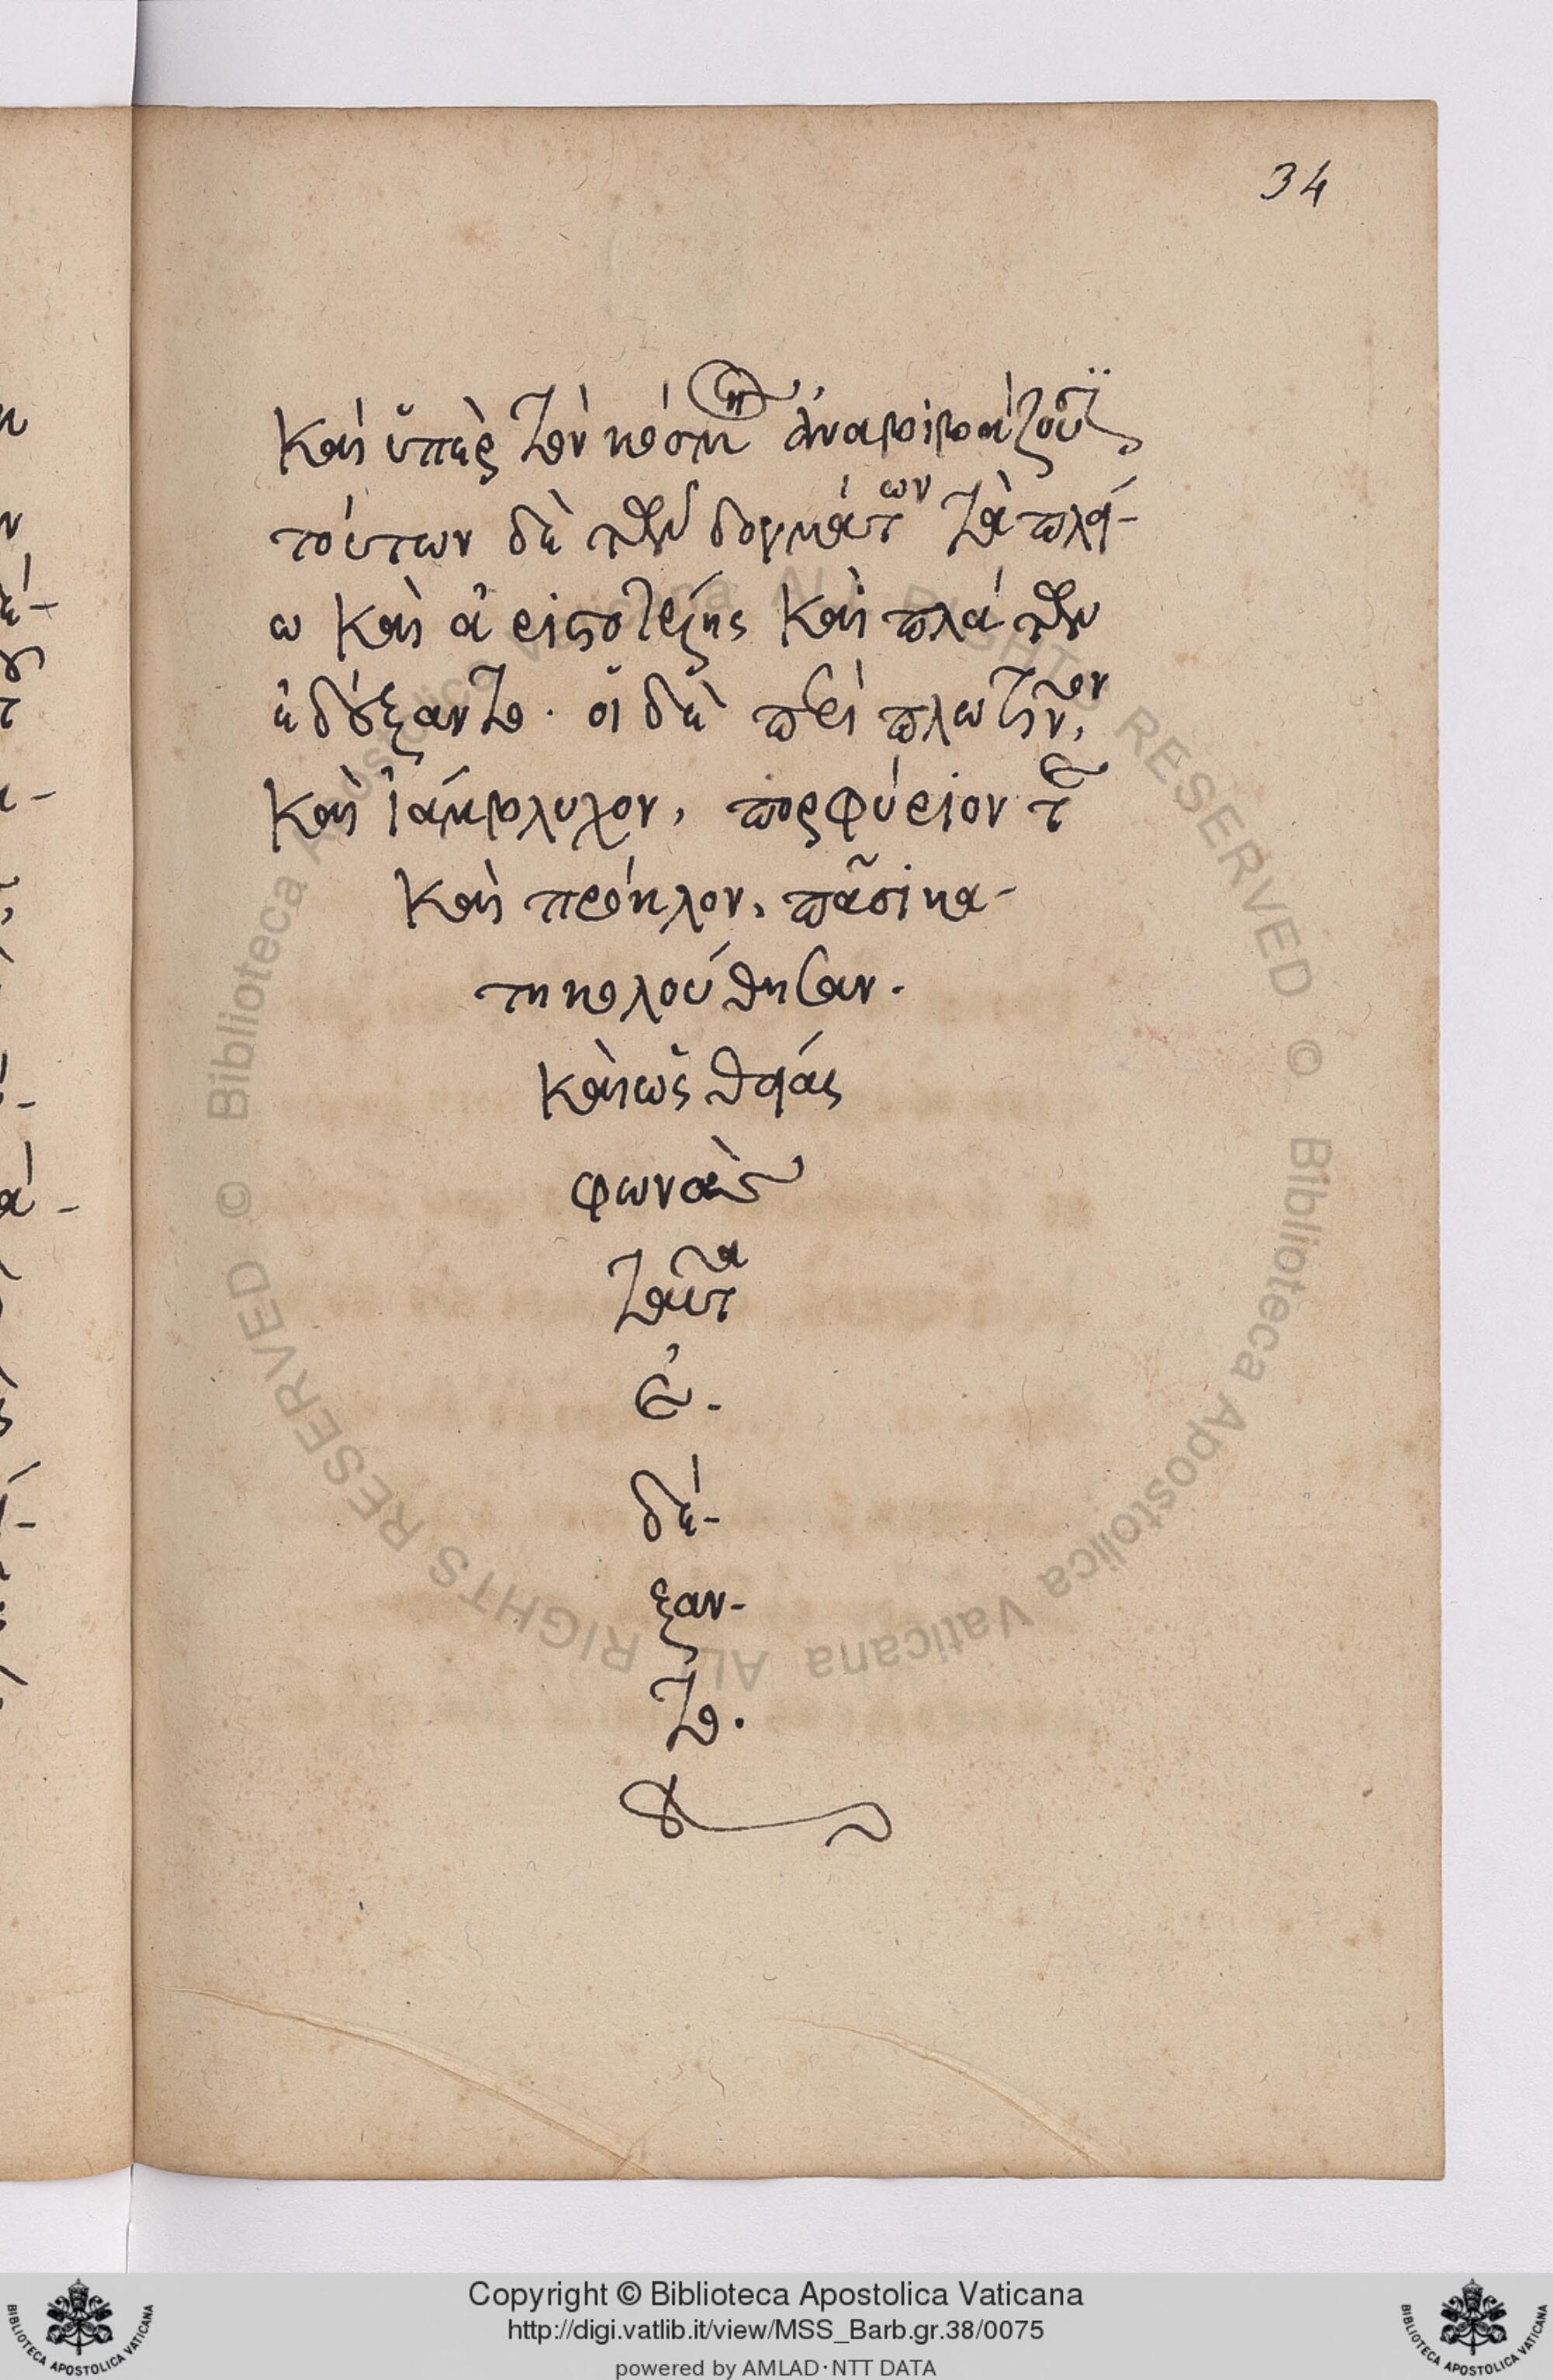 34
καὶ ὑπὲρ τὸν κόσμον ἀναβιβάζουσι
τούτων δὲ τῶν δογμάτων τὰ πλεί-
ω καὶ ἀριστοτέλης καὶ πλάτων
ἐδέξαντο. οἱ δὲ περὶ πλωτῖνον,
καὶ ἰάμβλυχον, πορφύριόν τε
καὶ πρόκλον, πᾶσι κα-
τηκολούθησαν.
καὶ ὡς θείας
φωνὰς
ταῦτα
ἐ-
δέ-
ξαν-
το.
Copyright © Biblioteca Apostolica Vaticana
http://digi.vatlib.it/view/MSS_Barb.gr.38/0075
powered by AMLAD·NTT DATA
BIBLIOTECA APOSTOLICA VATICANA
BIBLIOTECA APOSTOLICA VATICANA
© Biblioteca Apostolica Vaticana ALL RIGHTS RESERVED
© Biblioteca Apostolica Vaticana ALL RIGHTS RESERVED